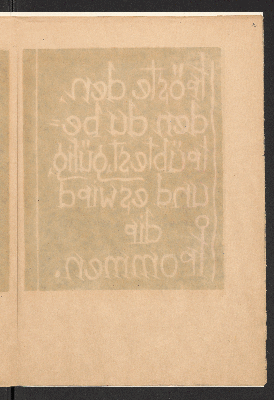 tröste den,
den du be=
trübtest, gütig,
und es wird
dir
frommen.